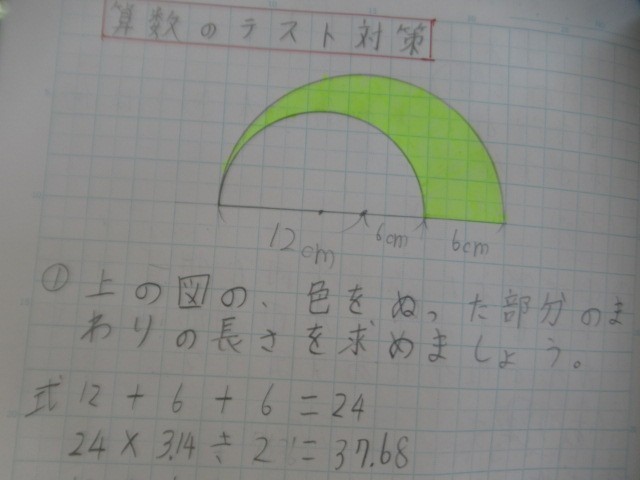 算数のテスト対策
12cm 6cm 6cm
① 上の図の、色をぬった部分のま
わりの長さを求めましょう。
式 12 + 6 + 6 = 24
24 × 3.14 ÷ 2 = 37.68